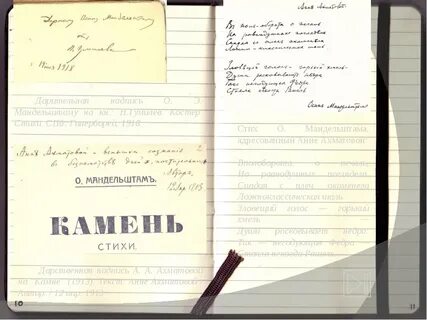 Н. Гумилев
1918
Дарственная надпись О. Э.
Мандельштаму на кн. Н.Гумилев. Костер
Стихи СПб-Гиперборей, 1918.
Анне Ахматовой - вспышки сознания
в беспамятстве дней.
Автор.
1913
О. МАНДЕЛЬШТАМЪ.
КАМЕНЬ
СТИХИ.
Дарственная надпись А. А. Ахматовой
на Камне (1913) текст Анне Ахматовой
Автор. 12 мар. 1913
10
Анне Ахматовой
Вполоборота о печаль
На равнодушных поглядела
Спадая с плеч окаменела
Ложно-классическая шаль
Зловещий голос - горький хмель
Души расковывает недра
Так негодующая Федра
Стояла некогда Рашель
Осип Мандельштам
Стих О. Мандельштама,
адресованный Анне Ахматовой
Вполоборота о печаль
На равнодушных поглядела
Спадая с плеч окаменела
Ложноклассическая шаль
Зловещий голос – горький
хмель
Души расковывает недра
Так – негодующая Федра
Стояла некогда Рашель
11